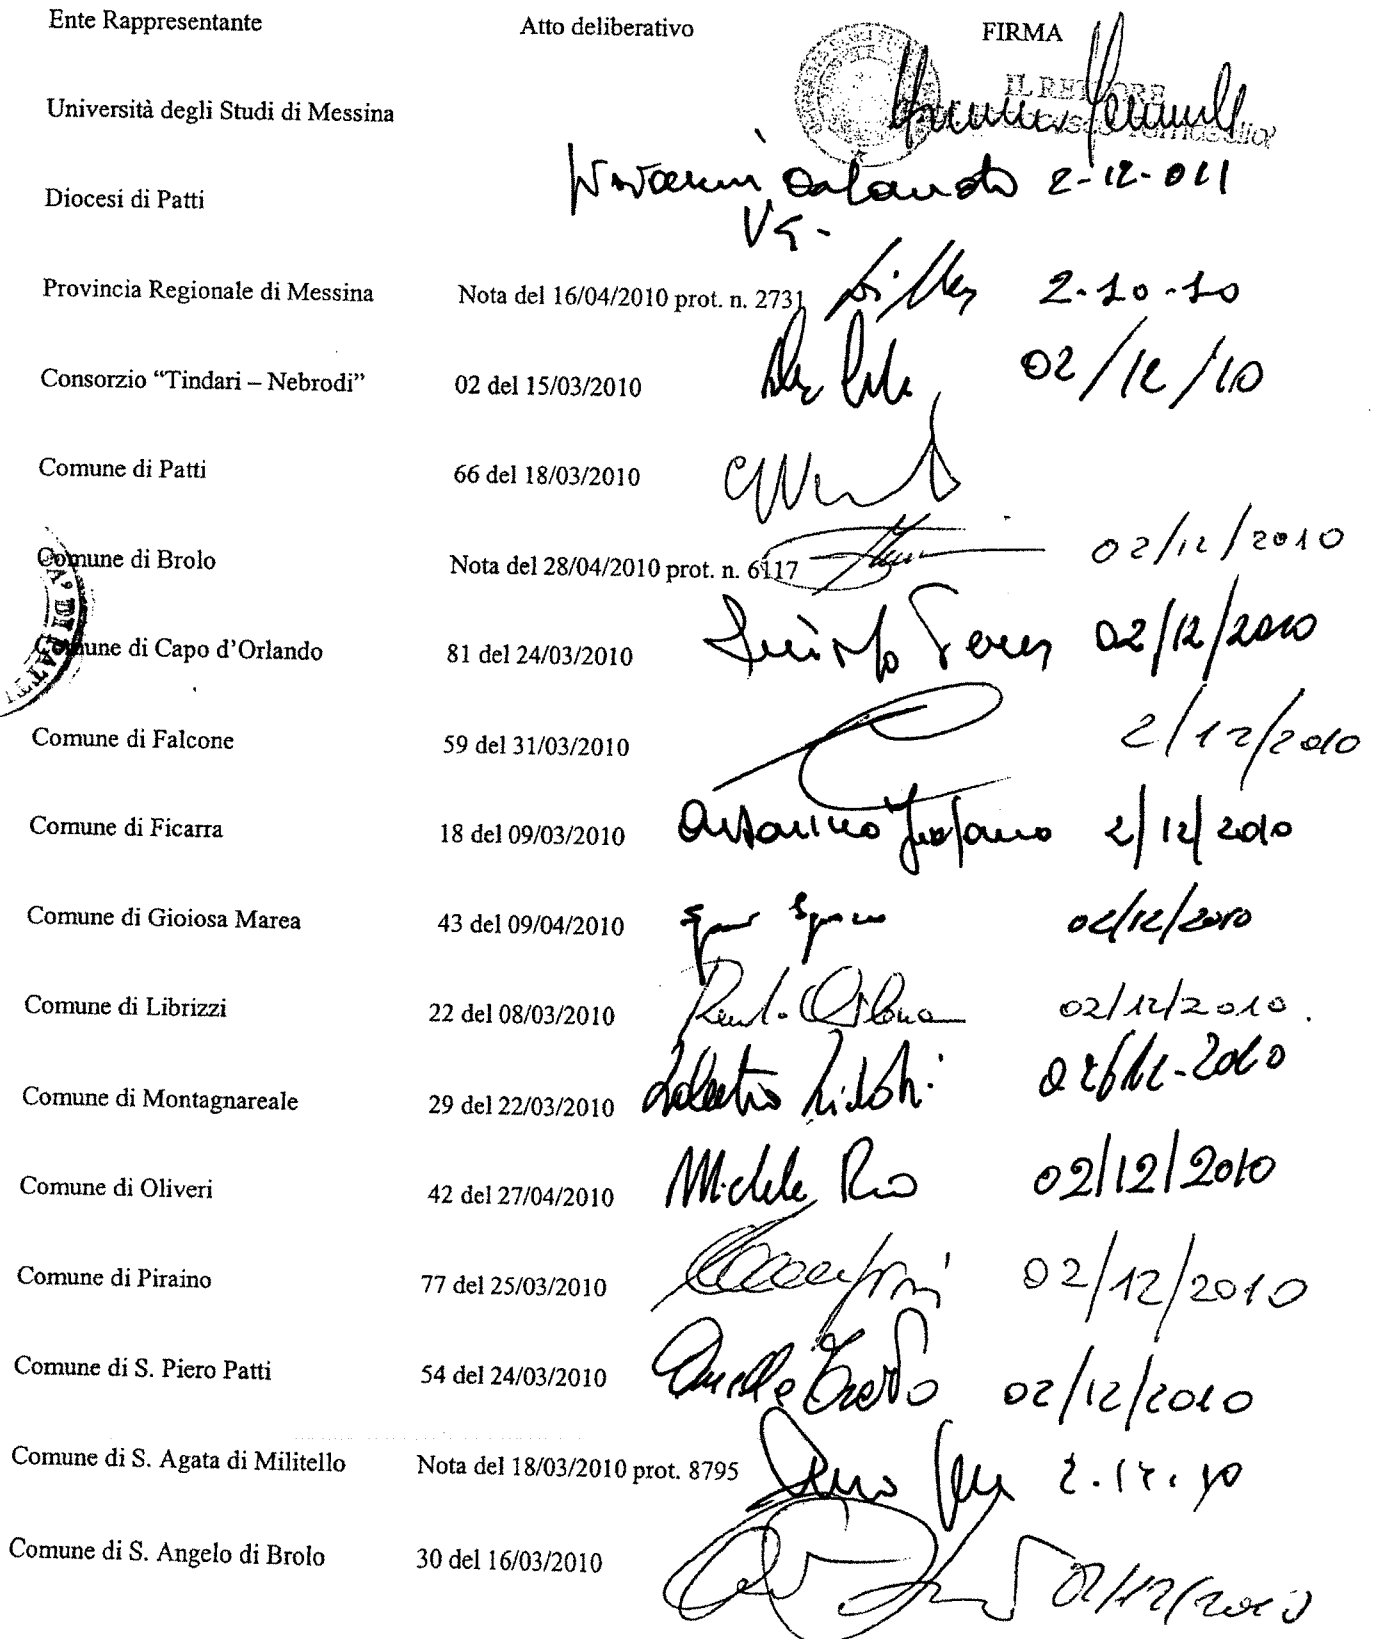 Ente Rappresentante Atto deliberativo FIRMA
IL RETTORE
Università degli Studi di Messina
Diocesi di Patti 2-12-011
Provincia Regionale di Messina Nota del 16/04/2010 prot. n. 2731 2-10-10
Consorzio “Tindari – Nebrodi” 02 del 15/03/2010 02/12/10
Comune di Patti 66 del 18/03/2010
Comune di Brolo Nota del 28/04/2010 prot. n. 6117 02/12/2010
Comune di Capo d’Orlando 81 del 24/03/2010 02/12/2010
DI PATTI
Comune di Falcone 59 del 31/03/2010 2/12/2010
Comune di Ficarra 18 del 09/03/2010 Antonino 2/12/2010
Comune di Gioiosa Marea 43 del 09/04/2010 02/12/2010
Comune di Librizzi 22 del 08/03/2010 02/12/2010.
Comune di Montagnareale 29 del 22/03/2010
Comune di Oliveri 42 del 27/04/2010 Michele Pino 02/12/2010
Comune di Piraino 77 del 25/03/2010 02/12/2010
Comune di S. Piero Patti 54 del 24/03/2010 02/12/2010
Comune di S. Agata di Militello Nota del 18/03/2010 prot. 8795 2.12.10
Comune di S. Angelo di Brolo 30 del 16/03/2010 02/12/2010